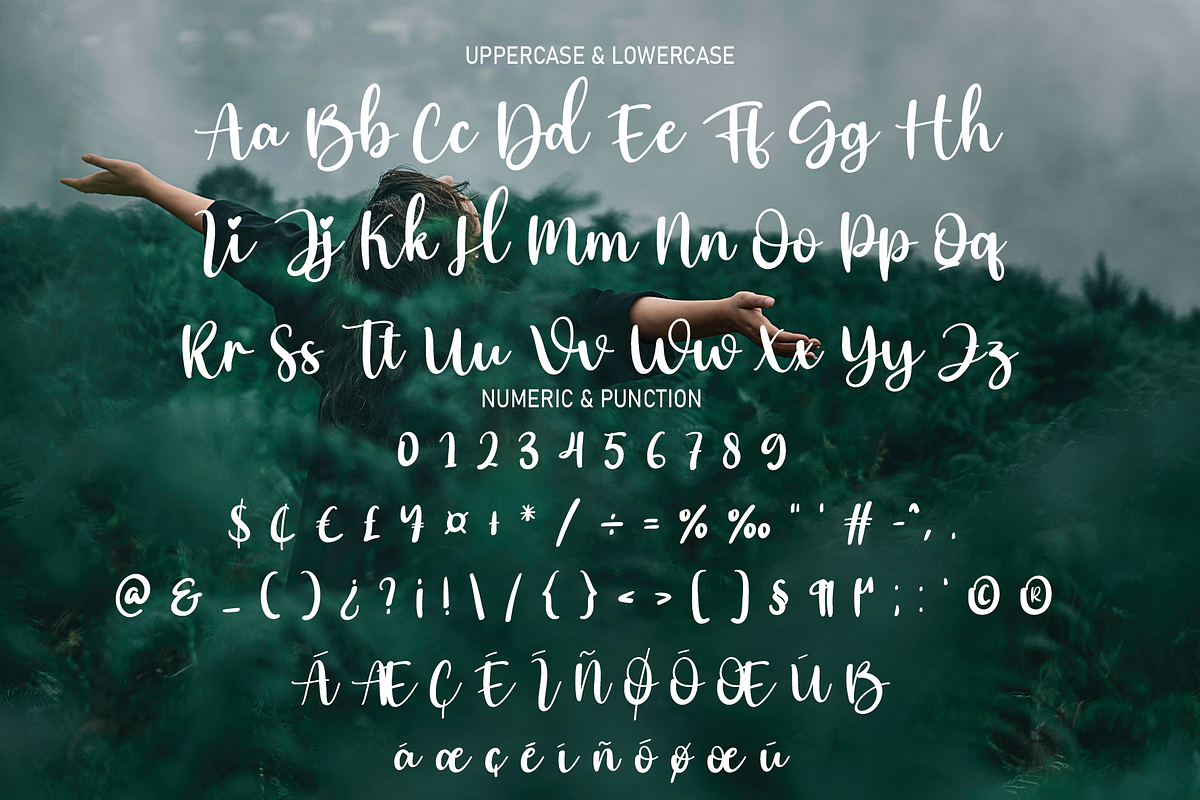 UPPERCASE & LOWERCASE
Aa Bb Cc Dd Ee Ff Gg Hh
Ii Jj Kk Ll Mm Nn Oo Pp Qq
Rr Ss Tt Uu Vv Ww Xx Yy Zz
NUMERIC & PUNCTION
0 1 2 3 4 5 6 7 8 9
$ ₵ € £ ¥ ¤ + * / ÷ = % ‰ " ' # - ˆ , .
@ & _ ( ) ¿ ? ¡ ! \ / { } < > [ ] § ¶ µ ; : ' © ®
Á Æ Ç É Í Ñ Ø Ó Œ Ú ß
á æ ç é í ñ ó ø œ ú